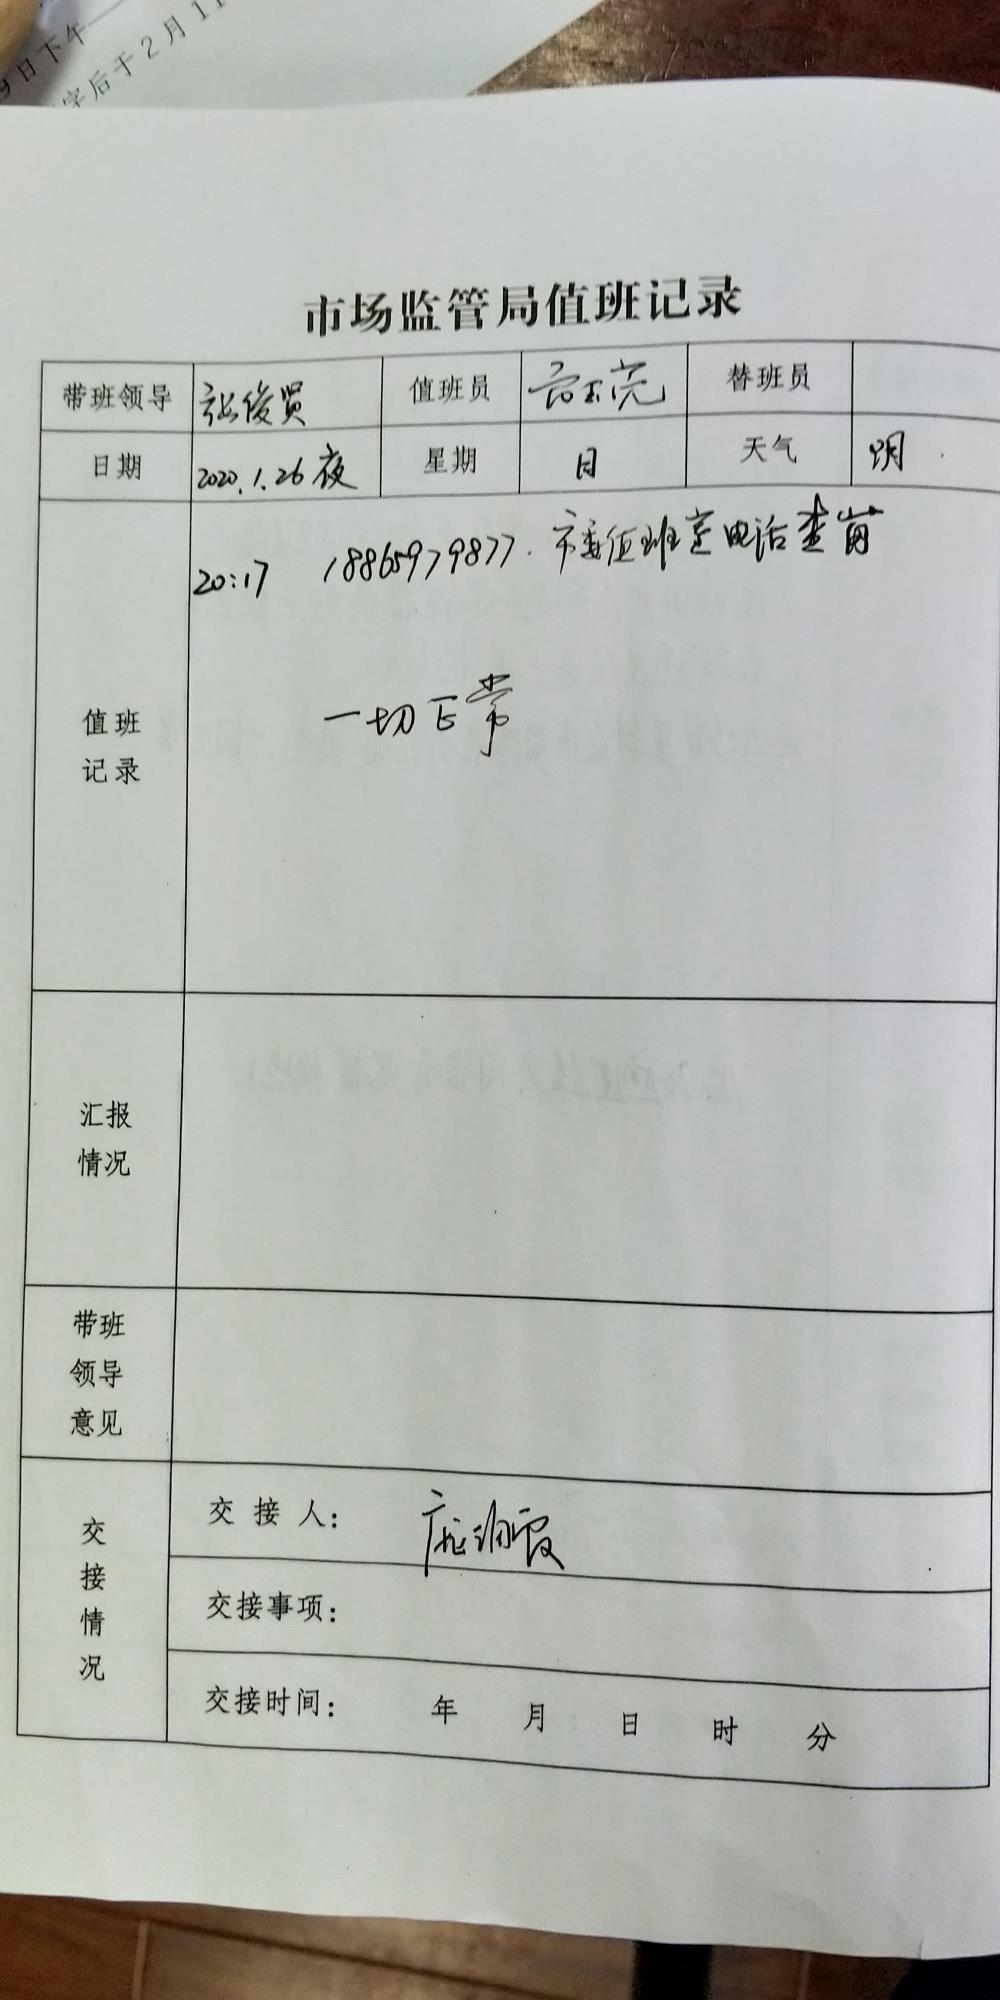 9日下午
字后于2月11
市场监管局值班记录
带班领导 张俊贤 值班员 替班员
日期 2020.1.26夜 星期 日 天气 阴
20:17 18865979877. 市委值班室电话查岗
一切正常
值班
记录
汇报
情况
带班
领导
意见
交接情况
交接人: 庞
交接事项:
交接时间: 年 月 日 时 分